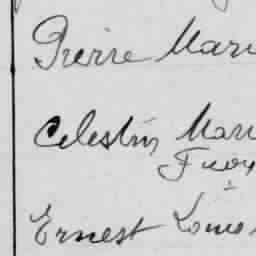 Pierre Mari
Celestin Mari
Ernest Louis